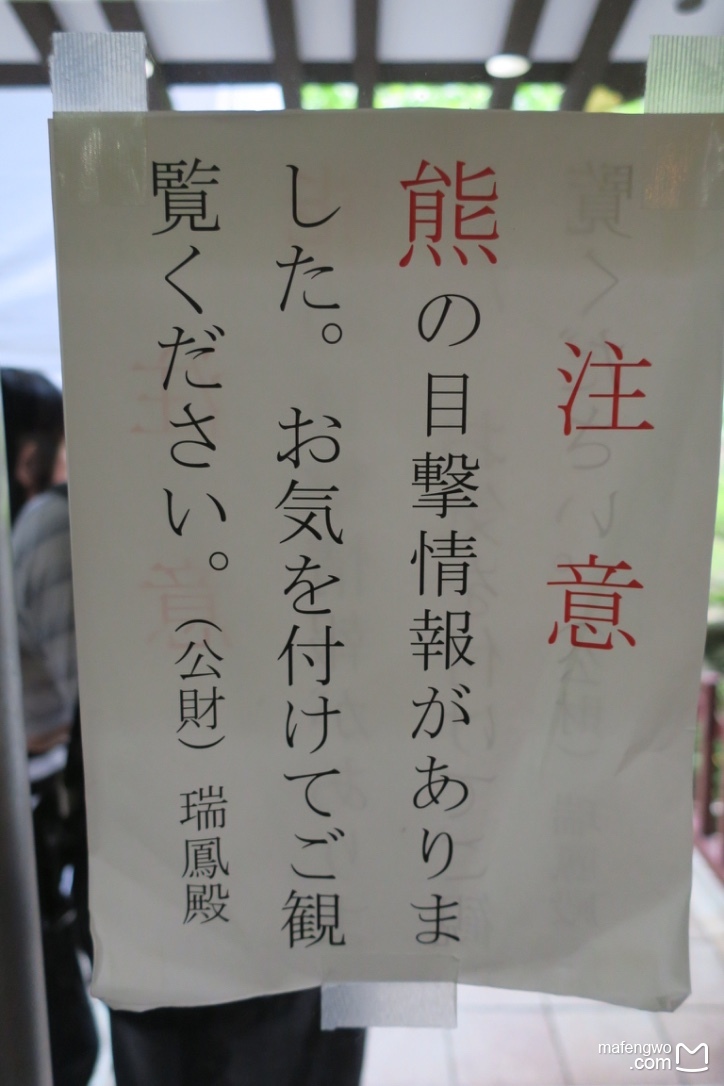 注意
熊の目撃情報がありま
した。お気を付けてご観
覧ください。（公財）瑞鳳殿
mafengwo
.com